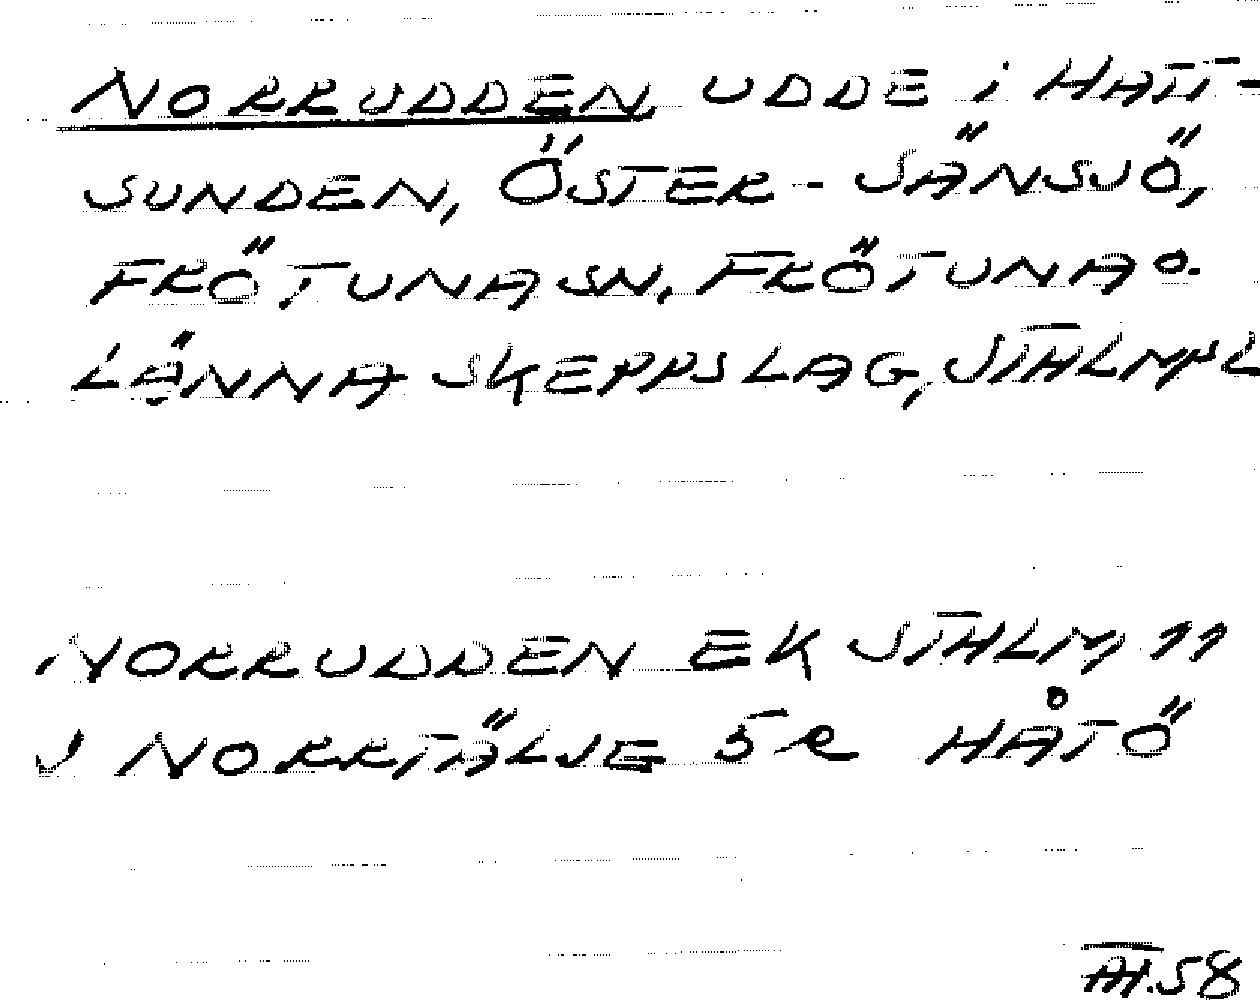 NORRUDDEN UDDE i HATT-
SUNDEN, ÖSTER-SÄNSJÖ,
FRÖTUNA SN, FRÖTUNA O.
LÄNNA SKEPPSLAG, STHLMS L
NORRUDDEN EK STHLM 11
J NORRTÄLJE 5 R HÅTÖ
58